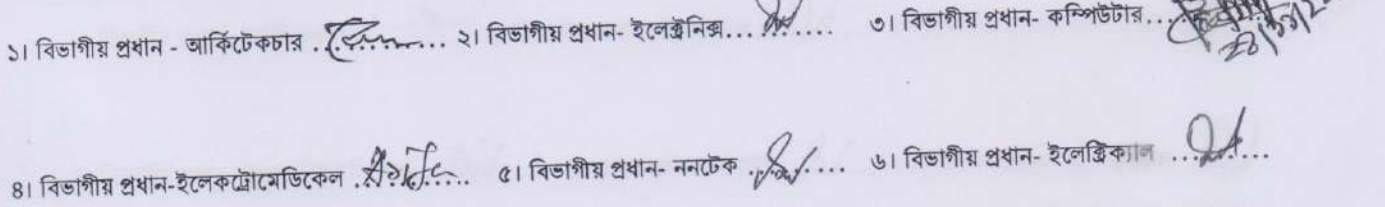 ১। বিভাগীয় প্রধান - আর্কিটেকচার .......... ২। বিভাগীয় প্রধান- ইলেক্ট্রনিক্স.......... ৩। বিভাগীয় প্রধান- কম্পিউটার...
৪। বিভাগীয় প্রধান-ইলেকট্রোমেডিকেল .......... ৫। বিভাগীয় প্রধান- ননটেক .......... ৬। বিভাগীয় প্রধান- ইলেক্ট্রিক্যাল ..........